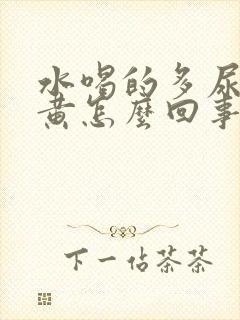 水喝的多尿
黄怎麼回事
下一佔茶茶